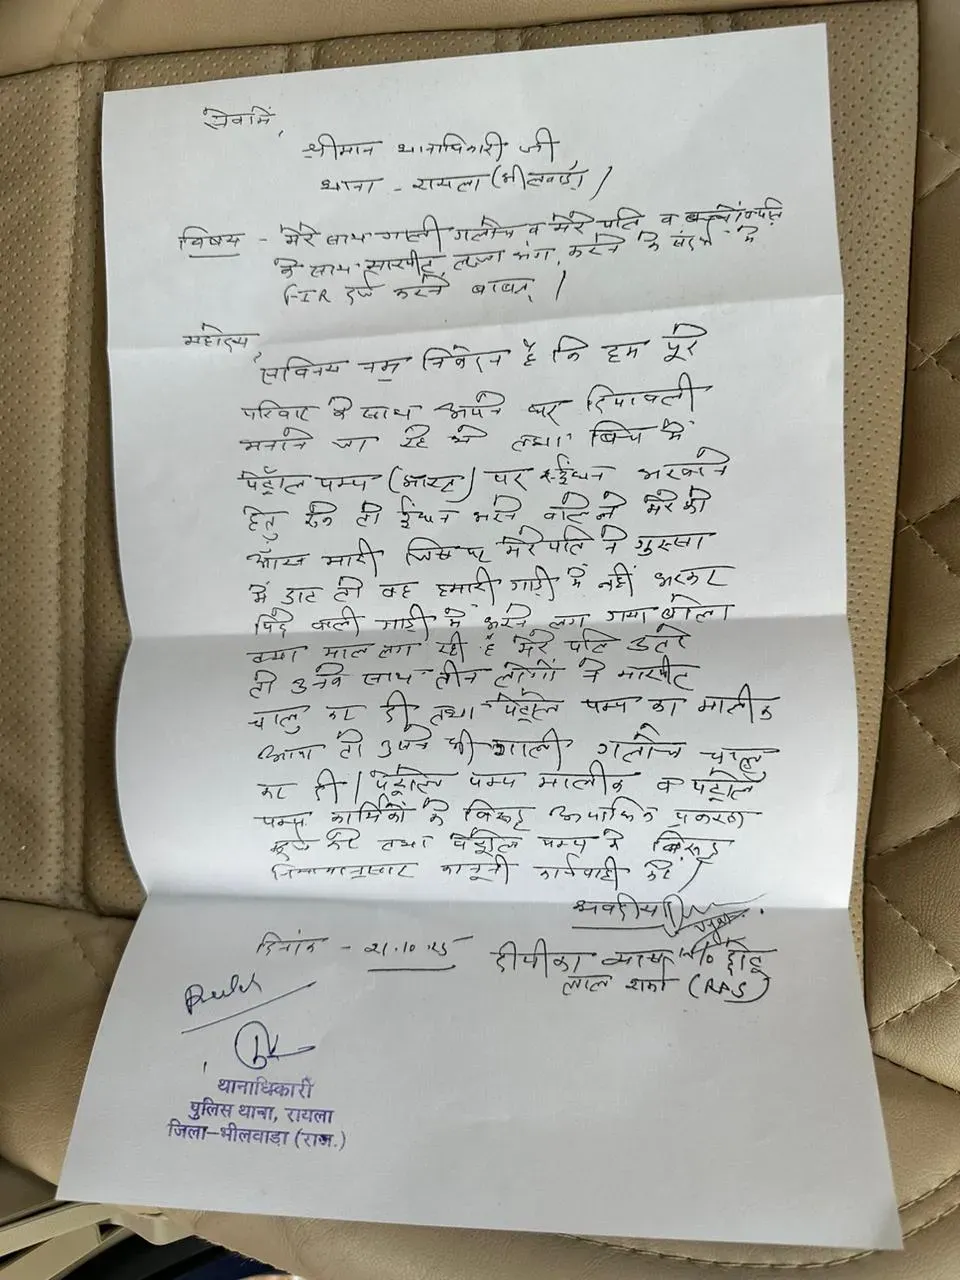 सेवामें,
श्रीमान थानाधिकारी जी
थाना - रायला (भीलवाड़ा)
विषय - मेरे साथ गाली गलौच व मेरे पति व
के साथ मारपीट, लज्जा भंग, करने के संदर्भ में
FIR दर्ज करने बाबत् ।
महोदय,
सविनय नम्र निवेदन है कि हम पूरे
परिवार के साथ अपने घर दिपावली
मनाने जा रहे थे तथा बिच में
पेट्रोल पम्प पर ईंधन भरवाने
हेतु रुके तो ईंधन भरने वाले ने मेरे को
आँख मारी जिसपर मेरे पति ने गुस्सा
में डाट तो वह हमारी गाड़ी में नहीं भरकर
पिछे वाली गाड़ी में भरने लग गया बोला
क्या माल लग रही है मेरे पति उतरे
तो उनके साथ तीन लोगों ने मारपीट
चालु कर दी तथा पेट्रोल पम्प का मालीक
आया तो उसने भी गाली गलौच चालु
कर दी। पेट्रोल पम्प मालीक व पेट्रोल
पम्प कार्मिकों के विरूद्ध प्रकरण
दर्ज करे तथा पेट्रोल पम्प के विरूद्ध
नियमानुसार कानूनी कार्यवाही करे।
भवदीय
दिनांक - 21.10.25
दीपीका व्यास W/o छोटू
लाल शर्मा (RAS)
थानाधिकारी
पुलिस थाना, रायला
जिला-भीलवाड़ा (राज.)